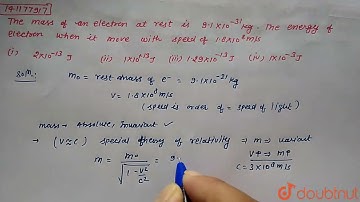 14177917
The mass of an electron at rest is 9.1×10⁻³¹ kg. The energy of
electron when it move with speed of 1.8×10⁸ m/s
(i) 2×10⁻¹³ J (ii) 1×10⁻¹³ J (iii) 1.29×10⁻¹³ J (iv) 1×10⁻¹³
Solⁿ. m₀ = rest mass of e⁻ = 9.1×10⁻³¹ kg
v = 1.8×10⁸ m/s
(speed is order of = speed of light)
mass → Absolute, Invariant ✓
→ (v≃c) special theory of relativity → m → variant
m = m₀ / √(1 - v²/c²) = 9.
v↑ → m↑
c = 3×10⁸ m/s
doubtnut